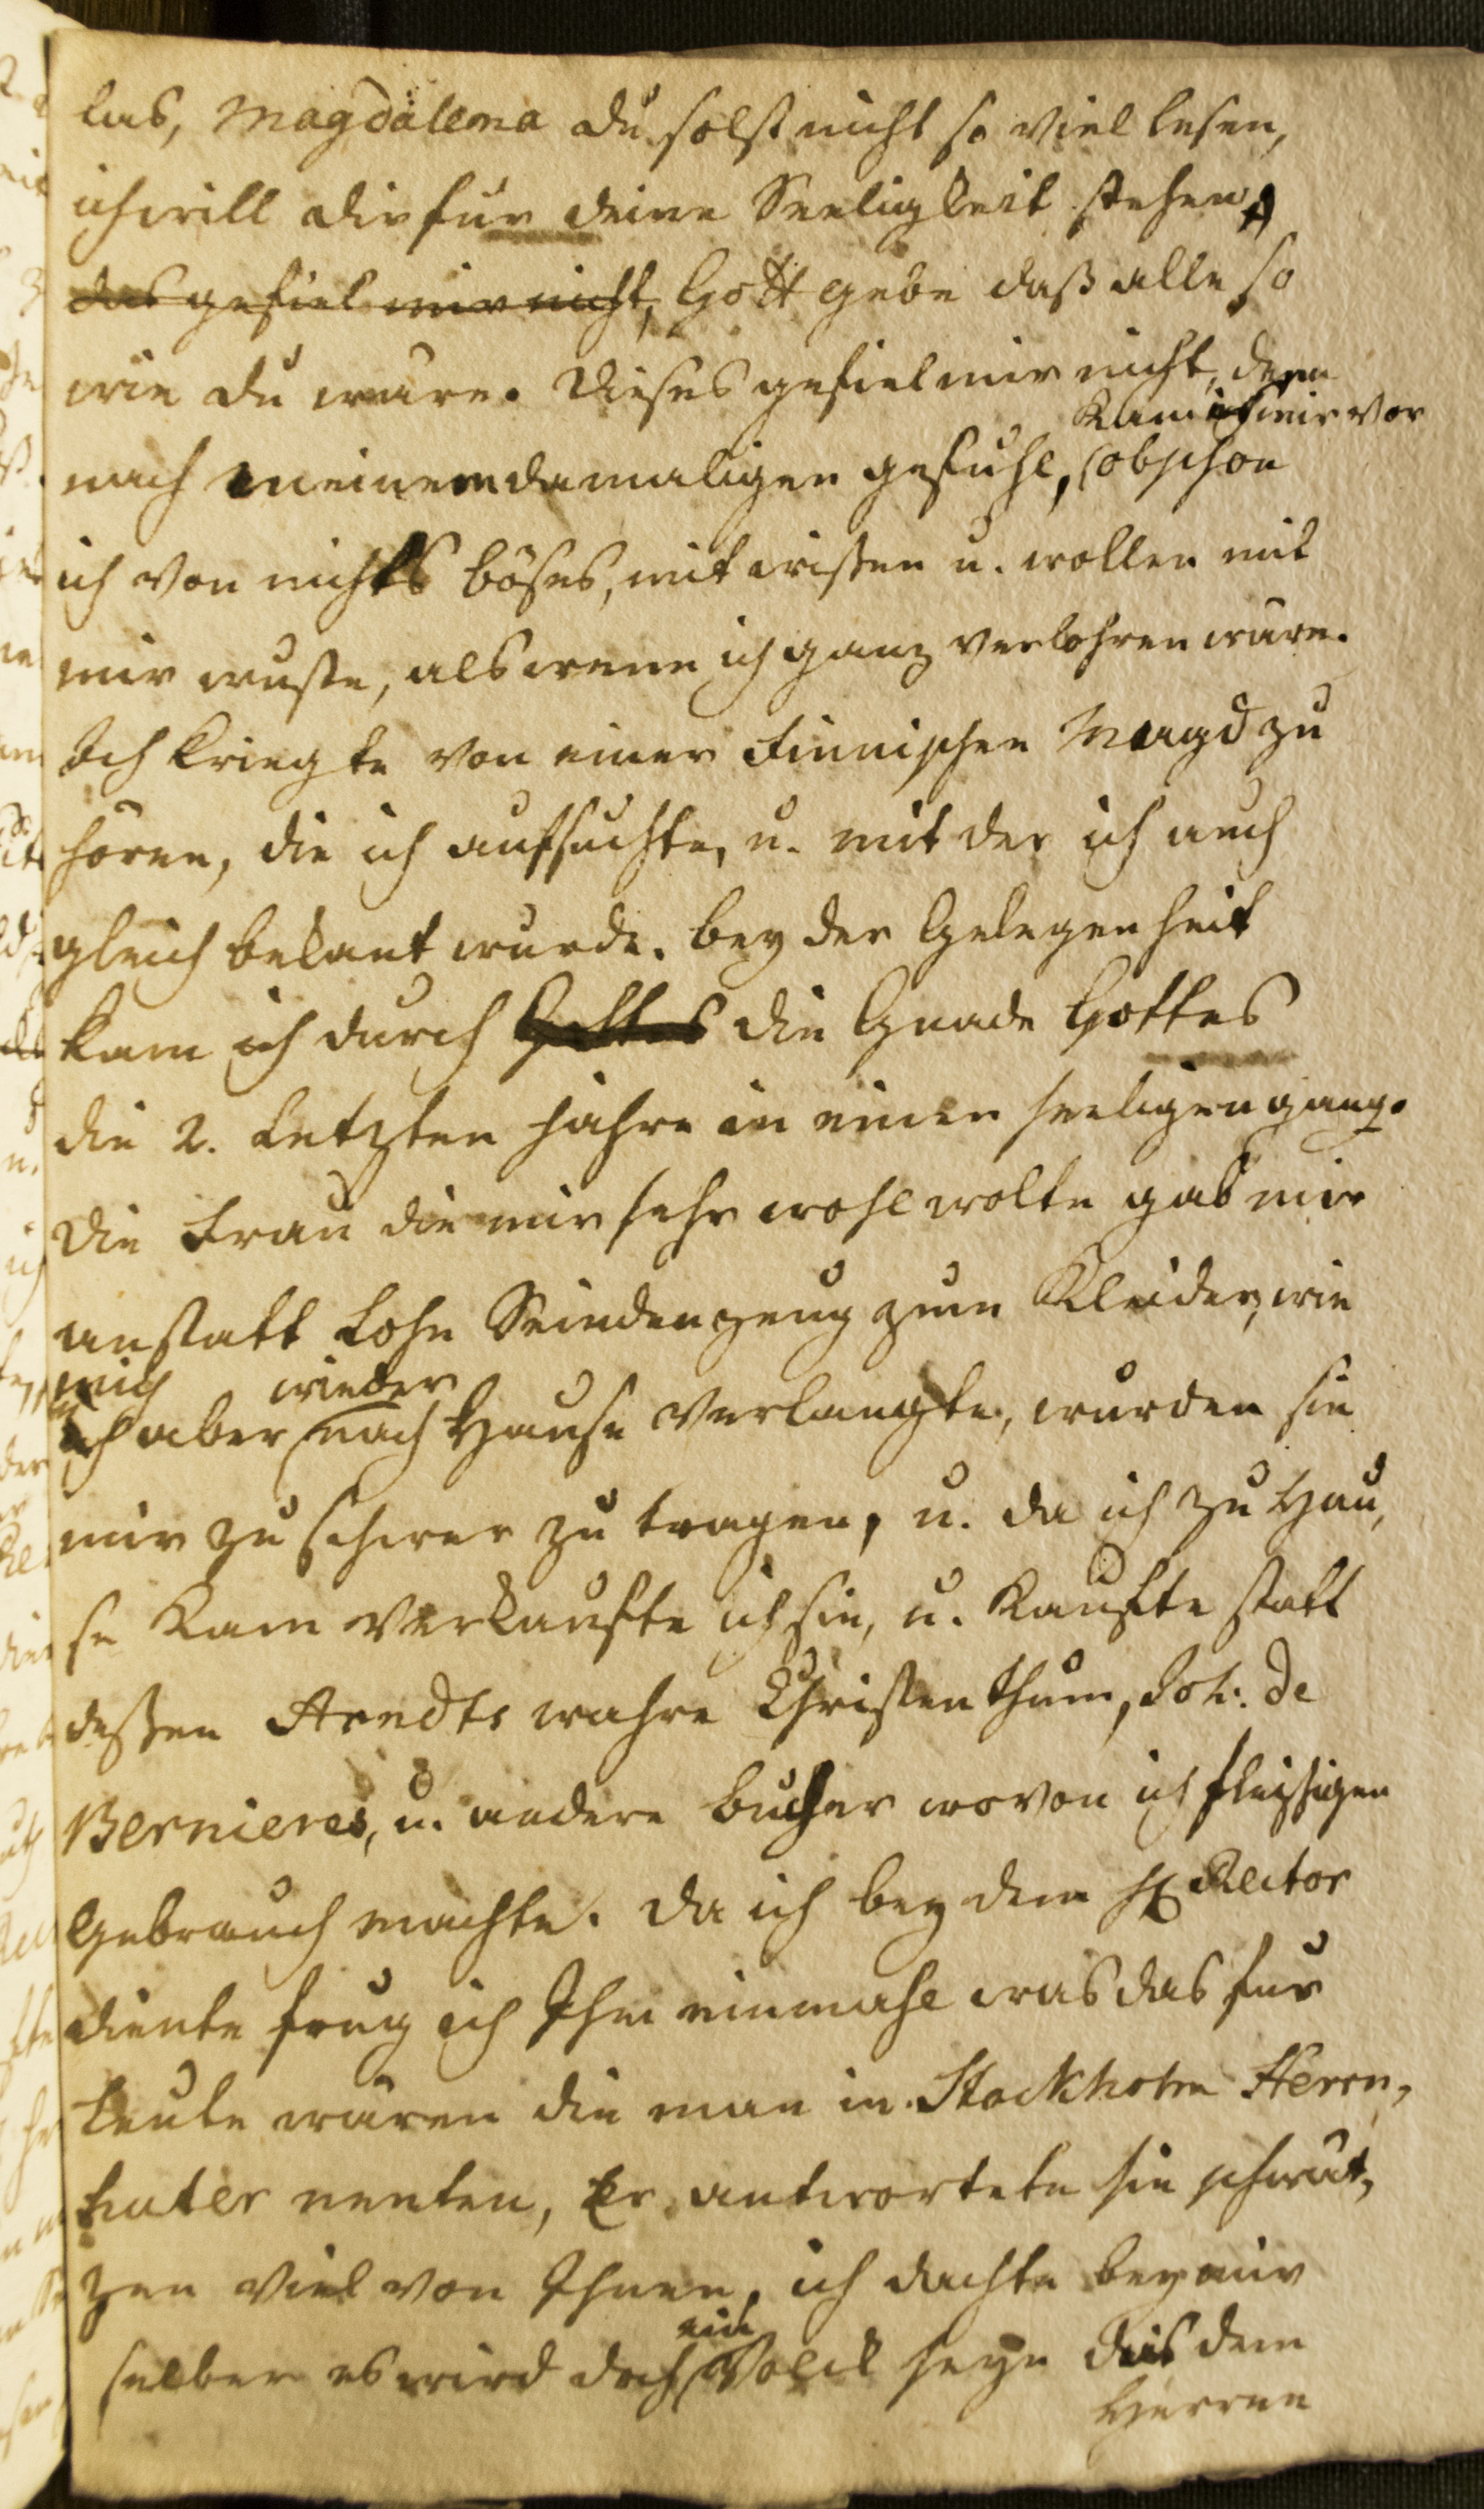 lus, Magdalena du solst nicht so viel lesen,
ich will dir für deine Seeligkeit stehen,
das gefiel mir nicht, Gott gebe daß alle so
wie du wäre. Dieses gefiel mir nicht, denn
kam mir vor
nach meinem damaligen gefühl, (obschon
ich von nichts böses, mit wißen u. wollen mit
mir wuste, als wenn ich ganz verlohren wäre.
Ich kriegte von einer Finnischen Magd zu
hören, die ich aufsuchte, u. mit der ich auch
gleich bekant wurde. bey der Gelegenheit
kam ich durch Gottes die Gnade Gottes
die 2. Letzten Jahre in einen seeligen gang.
Die Frau die mir sehr wohl wolte gab mir
anstatt Lohn Seindenzeug zum Kleider, wie
mich wieder
ich aber nach Hause verlangte, wurden sie
mir zu schwer zu tragen, u. da ich zu Hau,
se kam verkaufte ich sie, u. kaufte statt
deßen Arndts wahre Christenthum, Joh: de
Bernieres, u. andere bücher wovon ich fleißigen
Gebrauch machte. Da ich bey dem H Rector
diente frug ich Ihn einmahl was das für
Leute wären die man in Stockholm Herrn,
huter nenten, Er antwortete sie schwät,
zen viel von Ihnen, ich dachte bey mir
ein
selber es wird doch Volck seyn das dem
Herren